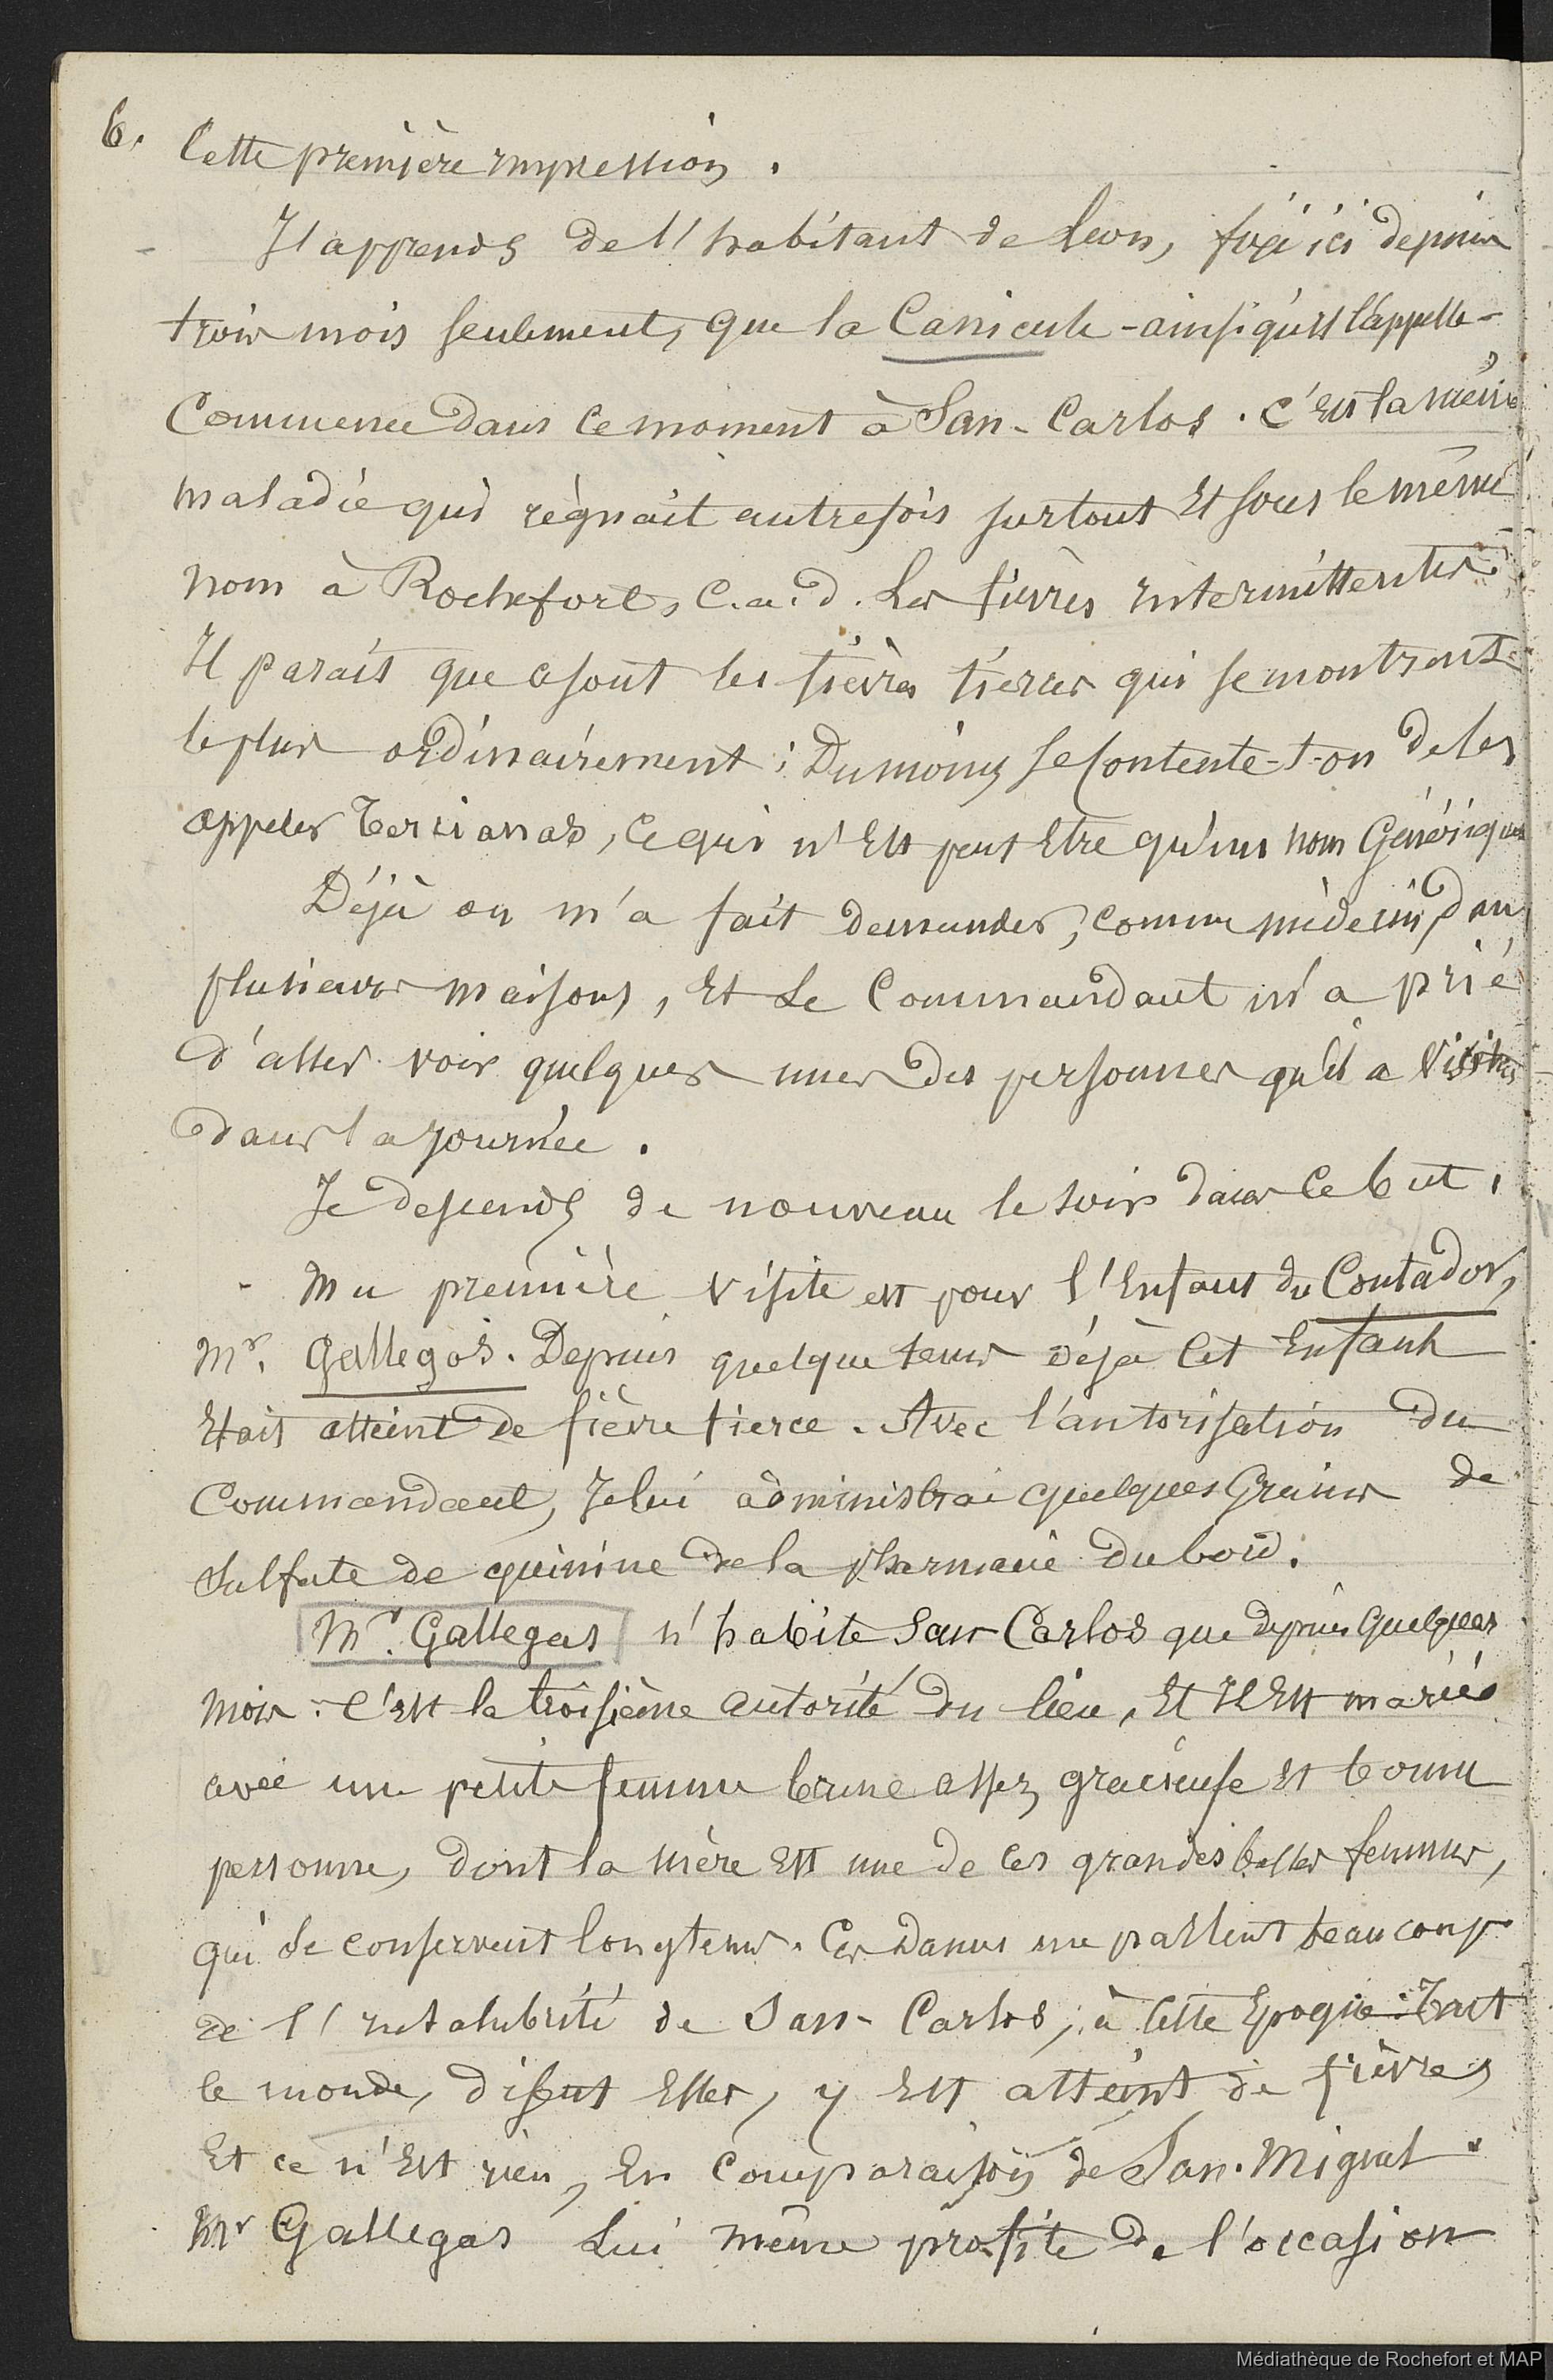 6.
Cette première impression.
J'apprends de l'habitant de Leon, fixé ici depuis
trois mois seulement, que la Canicule - ainsi qu'il l'appelle -
Commence dans ce moment à San-Carlos. C'est la même
maladie qui règnait autrefois surtout Et sous le même
nom à Rochefort, c.a.d. Les fièvres intermittentes.
Il parait que ce sont les fièvres tierces qui se montrent
le plus ordinairement ; Du moins se contente-t-on de les
appeler Tercianas, ce qui n'Est peut Etre qu'un nom Générique
Déjà on m'a fait demander, comme médecin, dans
plusieurs maisons, Et Le Commandant m'a prié
d'aller voir quelques unes des personnes qu'il a visitées
dans la journée.
Je descends de nouveau le soir dans ce but.
- Ma première visite est pour l'Enfant du Contador,
Mr. Gallegos. Depuis quelque tems déjà Cet Enfant
Etait atteint de fièvre tierce. Avec l'autorisation du
Commandant, Je lui administrai quelques Grains de
Sulfate de quinine de la pharmacie du bord.
Mr. Gallegas n'habite San Carlos que depuis quelques
mois : C'Est la troisième autorité du lieu, Et Il Est marié
avec une petite femme brune assez gracieuse Et bonne
personne, dont la mère Est une de ces grandes belles femmes,
qui se conservent longtems. Ces Dames me parlent beaucoup
de l'insalubrité de San-Carlos, à cette Epoque : Tout
le monde, disent Elles, y Est atteint de fièvres
Et ce n'Est rien, En Comparaison de San-Miguel.
Mr Gallegas Lui même profite de l'occasion
Médiathèque de Rochefort et MAP